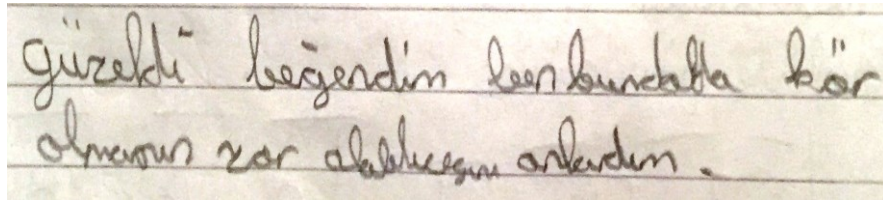 güzeldi beğendim ben bundatta kör
olmanın zor olabileceğini anladım.